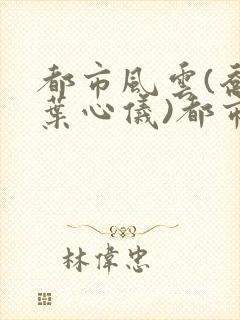 都市風雲(喬
葉心儀)都市
林偉忠